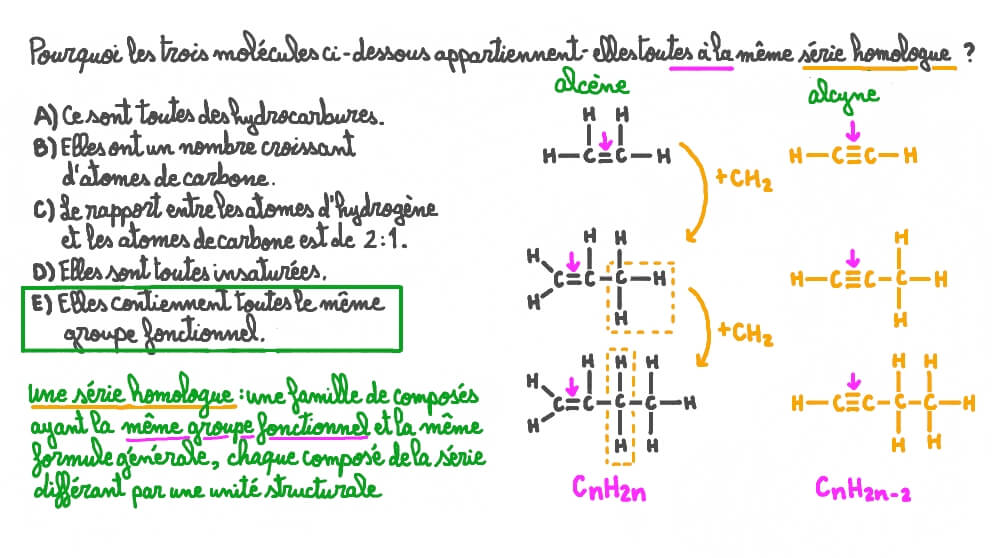 Pourquoi les trois molécules ci-dessous appartiennent-elles toutes à la même série homologue ?
A) Ce sont toutes des hydrocarbures.
B) Elles ont un nombre croissant
d'atomes de carbone.
C) Le rapport entre les atomes d'hydrogène
et les atomes de carbone est de 2:1.
D) Elles sont toutes insaturées.
E) Elles contiennent toutes le même
groupe fonctionnel.
une série homologue : une famille de composés
ayant la même groupe fonctionnel et la même
formule générale, chaque composé de la série
différant par une unité structurale
alcène
H H
H-C=C-H
+CH2
H H
H C=C-C-H
H H
+CH2
H H H
H C=C-C-C-H
H H H
CnH2n
alcyne
H-C≡C-H
H
H-C≡C-C-H
H
H H
H-C≡C-C-C-H
H H
CnH2n-2